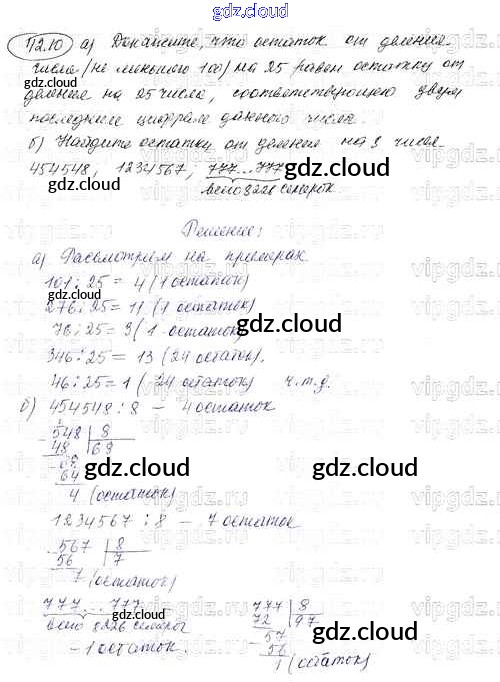 gdz.cloud
12.10 а) Докажите, что остаток от деления
числа (не меньшего 100) на 25 равен остатку от
gdz.cloud
деления на 25 числа, соответствующего двум
последним цифрам данного числа.
б) Найдите остатки от деления на 8 чисел
454548, 1234567, 777...777
gdz.cloud
всего семерок.
gdz.cloud
Решение:
а) Рассмотрим на примерах
101 : 25 = 4 (1 остаток)
gdz.cloud
276 : 25 = 11 (1 остаток)
76 : 25 = 3 (1 остаток)
gdz.cloud
346 : 25 = 13 (24 остаток).
46 : 25 = 1 (24 остаток) ч.т.д.
gdz.cloud
б) 454548 : 8 - 4 остаток
548 | 8
48 69
gdz.cloud
gdz.cloud
64
4 (остаток)
1234567 : 8 - 7 остаток
567 | 8
56 7
gdz.cloud
7 (остаток)
777...777 777 | 8
всего семерок 72 97
gdz.cloud
57
- 1 остаток. 56
gdz.cloud
1 (остаток)